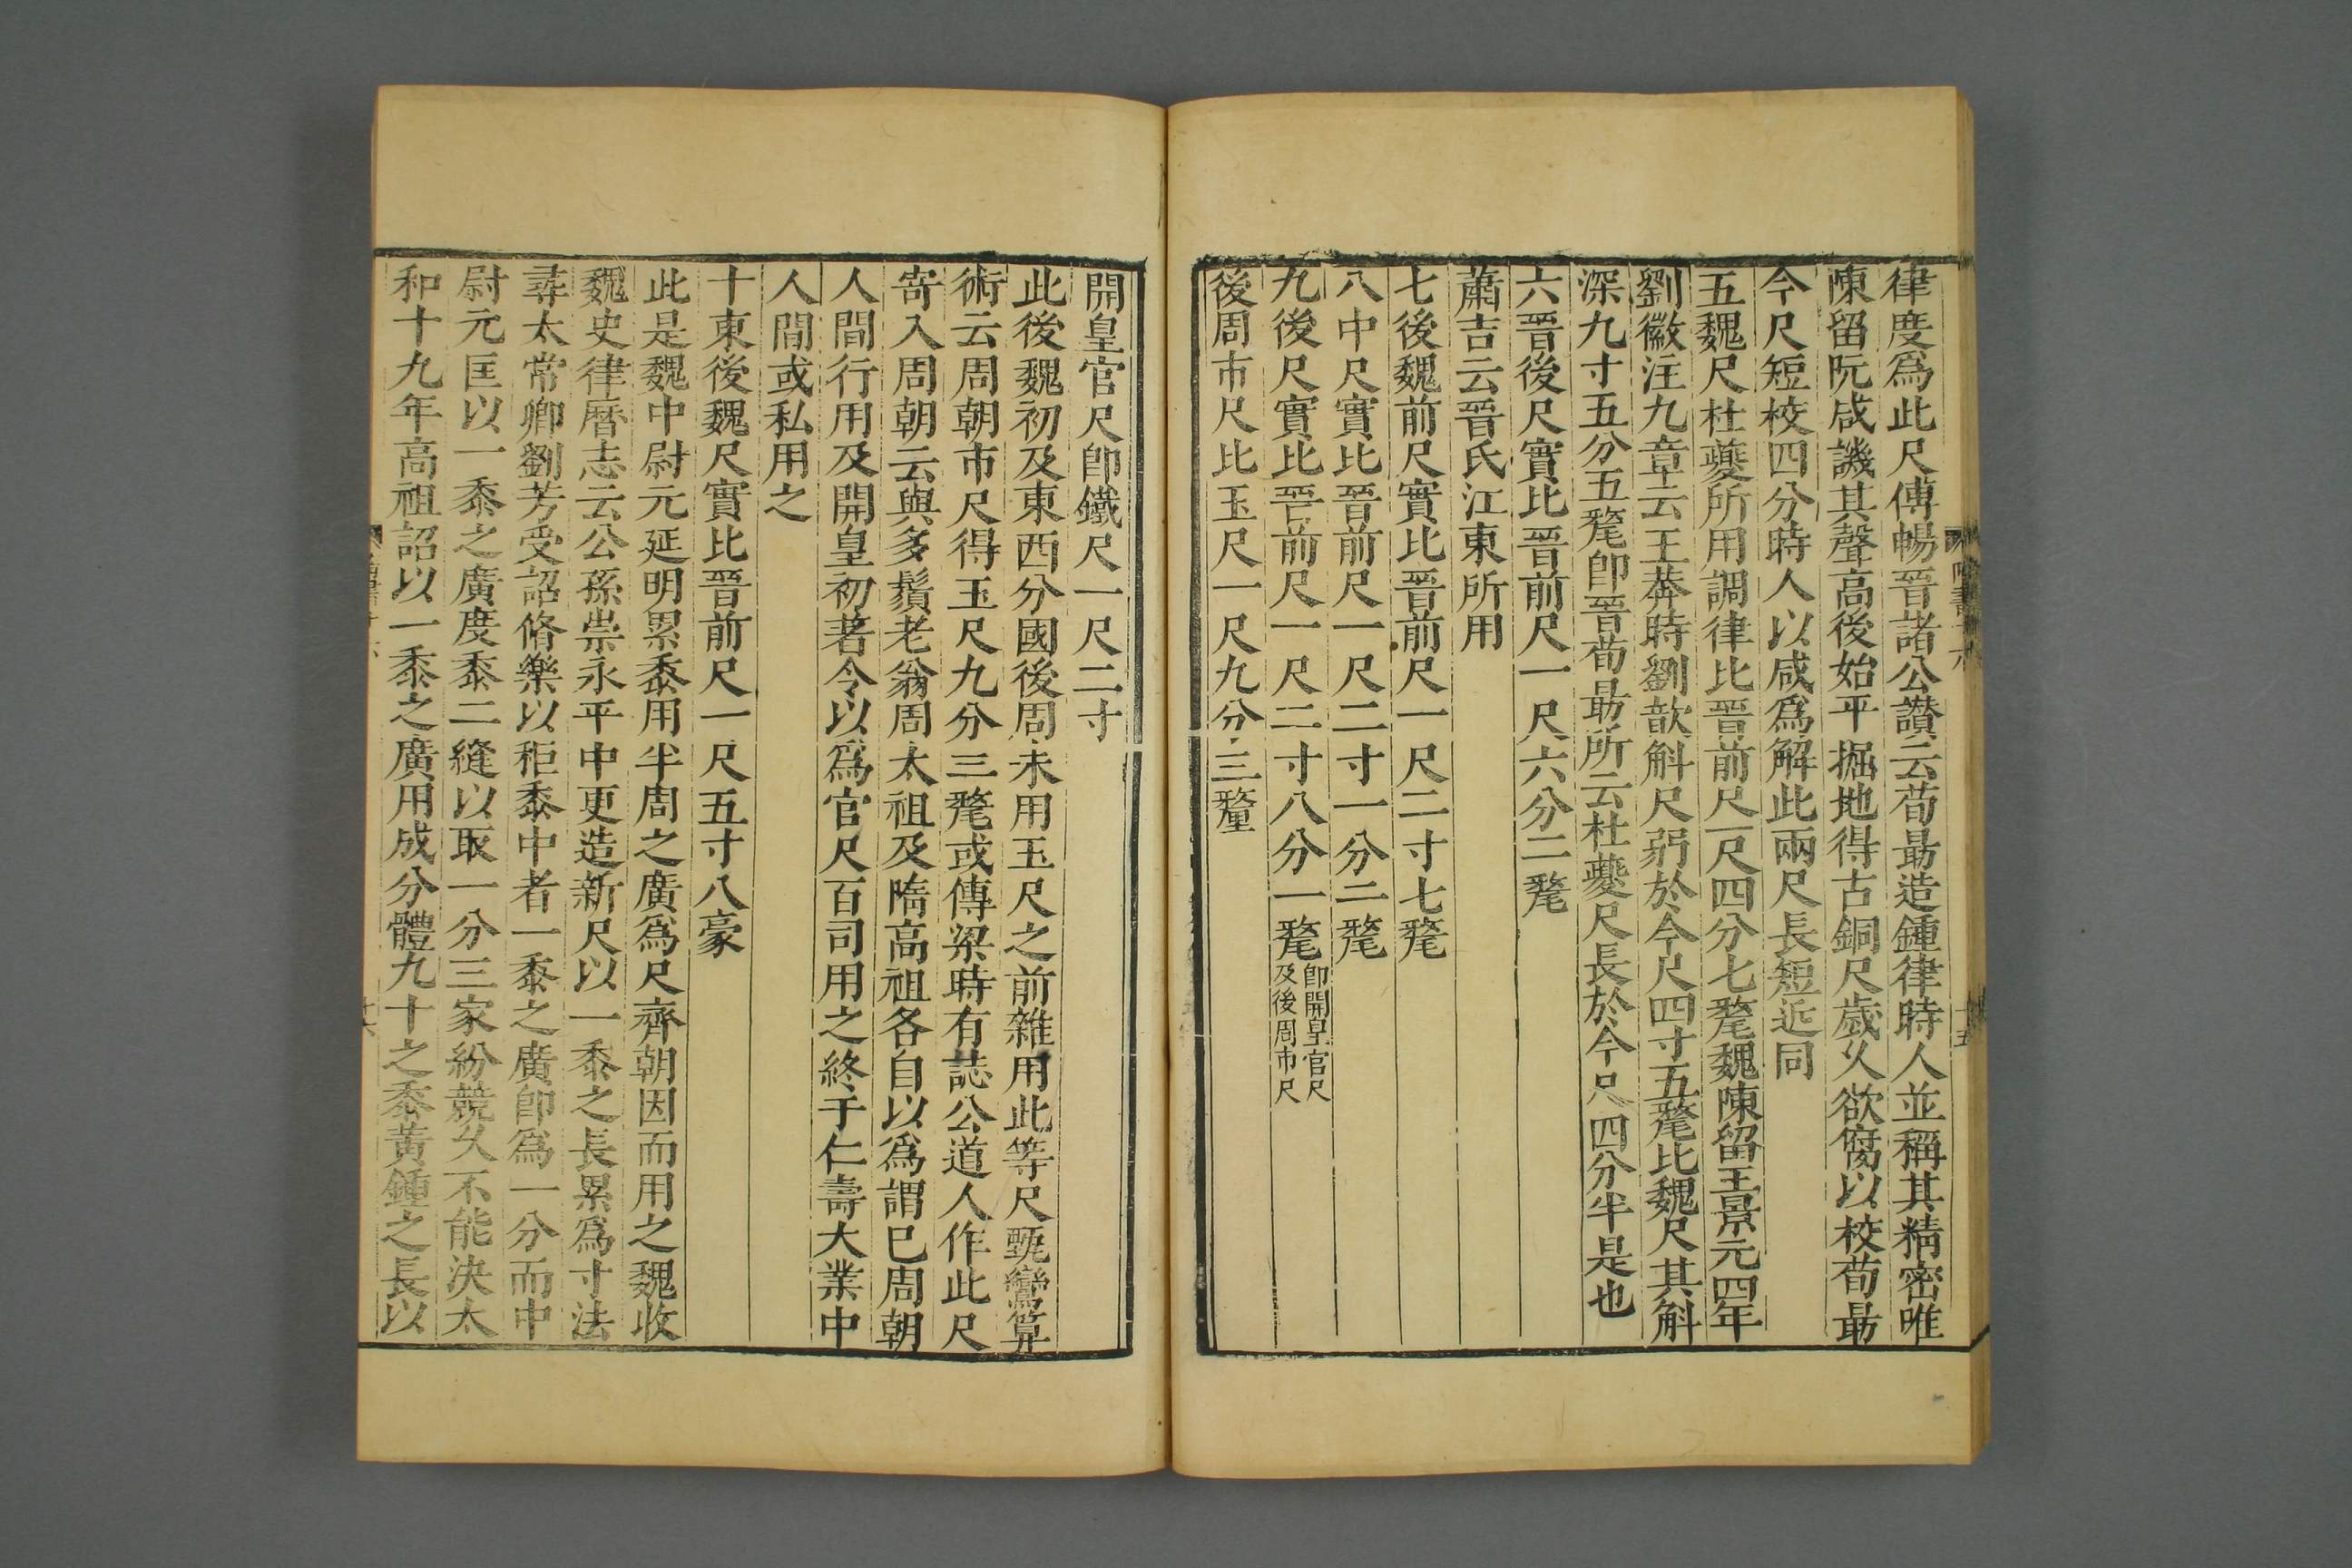 律度爲此尺傅暢晉諸公讃云荀勗造鍾律時人並稱其精密唯
陳留阮咸譏其聲高後始平掘地得古銅尺歲乆欲腐以校荀勗
今尺短校四分時人以咸爲解此兩尺長短近同
五魏尺杜夔所用調律比晉前尺一尺四分七氂魏陳留王景元四年
劉徽注九章云王莽時劉歆斛尺弱於今尺四寸五氂比魏尺其斛
深九寸五分五氂即晉荀勗所云杜夔尺長於今尺四分半是也
六晉後尺實比晉前尺一尺六分二氂
蕭吉云晉氏江東所用
七後魏前尺實比晉前尺一尺二寸七氂
八中尺實比晉前尺一尺二寸一分二氂
九後尺實比晉前尺一尺二寸八分一氂即開皇官尺及後周市尺
後周市尺比玉尺一尺九分三氂
開皇官尺即鐵尺一尺二寸
此後魏初及東西分國後周未用玉尺之前雜用此等尺甄鸞算
術云周朝市尺得玉尺九分三氂或傳梁時有誌公道人作此尺
寄入周朝云與多鬚老翁周太祖及隋高祖各自以爲謂已周朝
人間行用及開皇初著令以爲官尺百司用之終于仁壽大業中
人間或私用之
十東後魏尺實比晉前尺一尺五寸八豪
此是魏中尉元延明累黍用半周之廣爲尺齊朝因而用之魏收
魏史律曆志云公孫崇永平中更造新尺以一黍之長累爲寸法
尋太常卿劉芳受詔脩樂以秬黍中者一黍之廣即爲一分而中
尉元匡以一黍之廣度黍二縫以取一分三家紛競乆不能決太
和十九年高祖詔以一黍之廣用成分體九十之黍黃鍾之長以